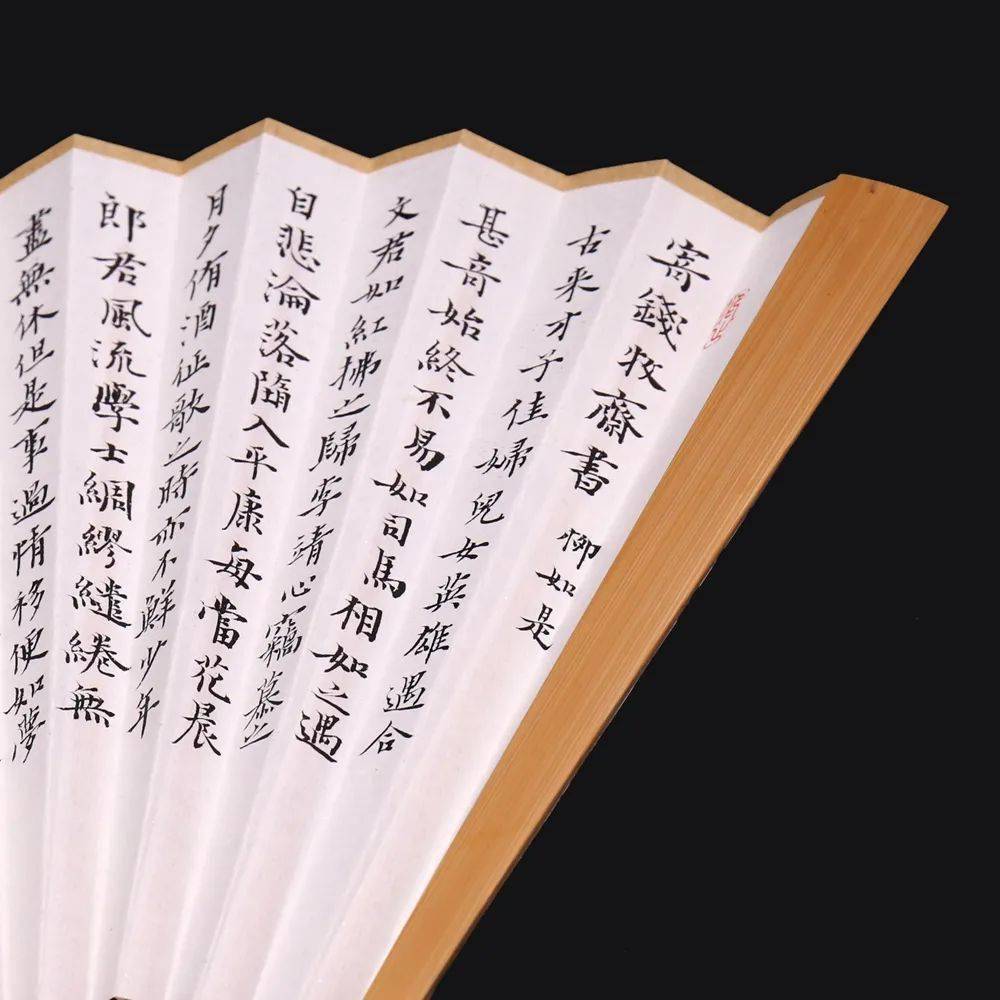 寄錢牧齋書 柳如是
古来才子佳婦兒女英雄遇合
甚奇始終不易如司馬相如之遇
文若如紅拂之歸李靖心竊慕之
自悲淪落隨入平康每當花晨
月夕侑酒征歌之時亦不鮮少年
郎君風流學士綢繆繾綣無
盡無休但是事過情移便如夢